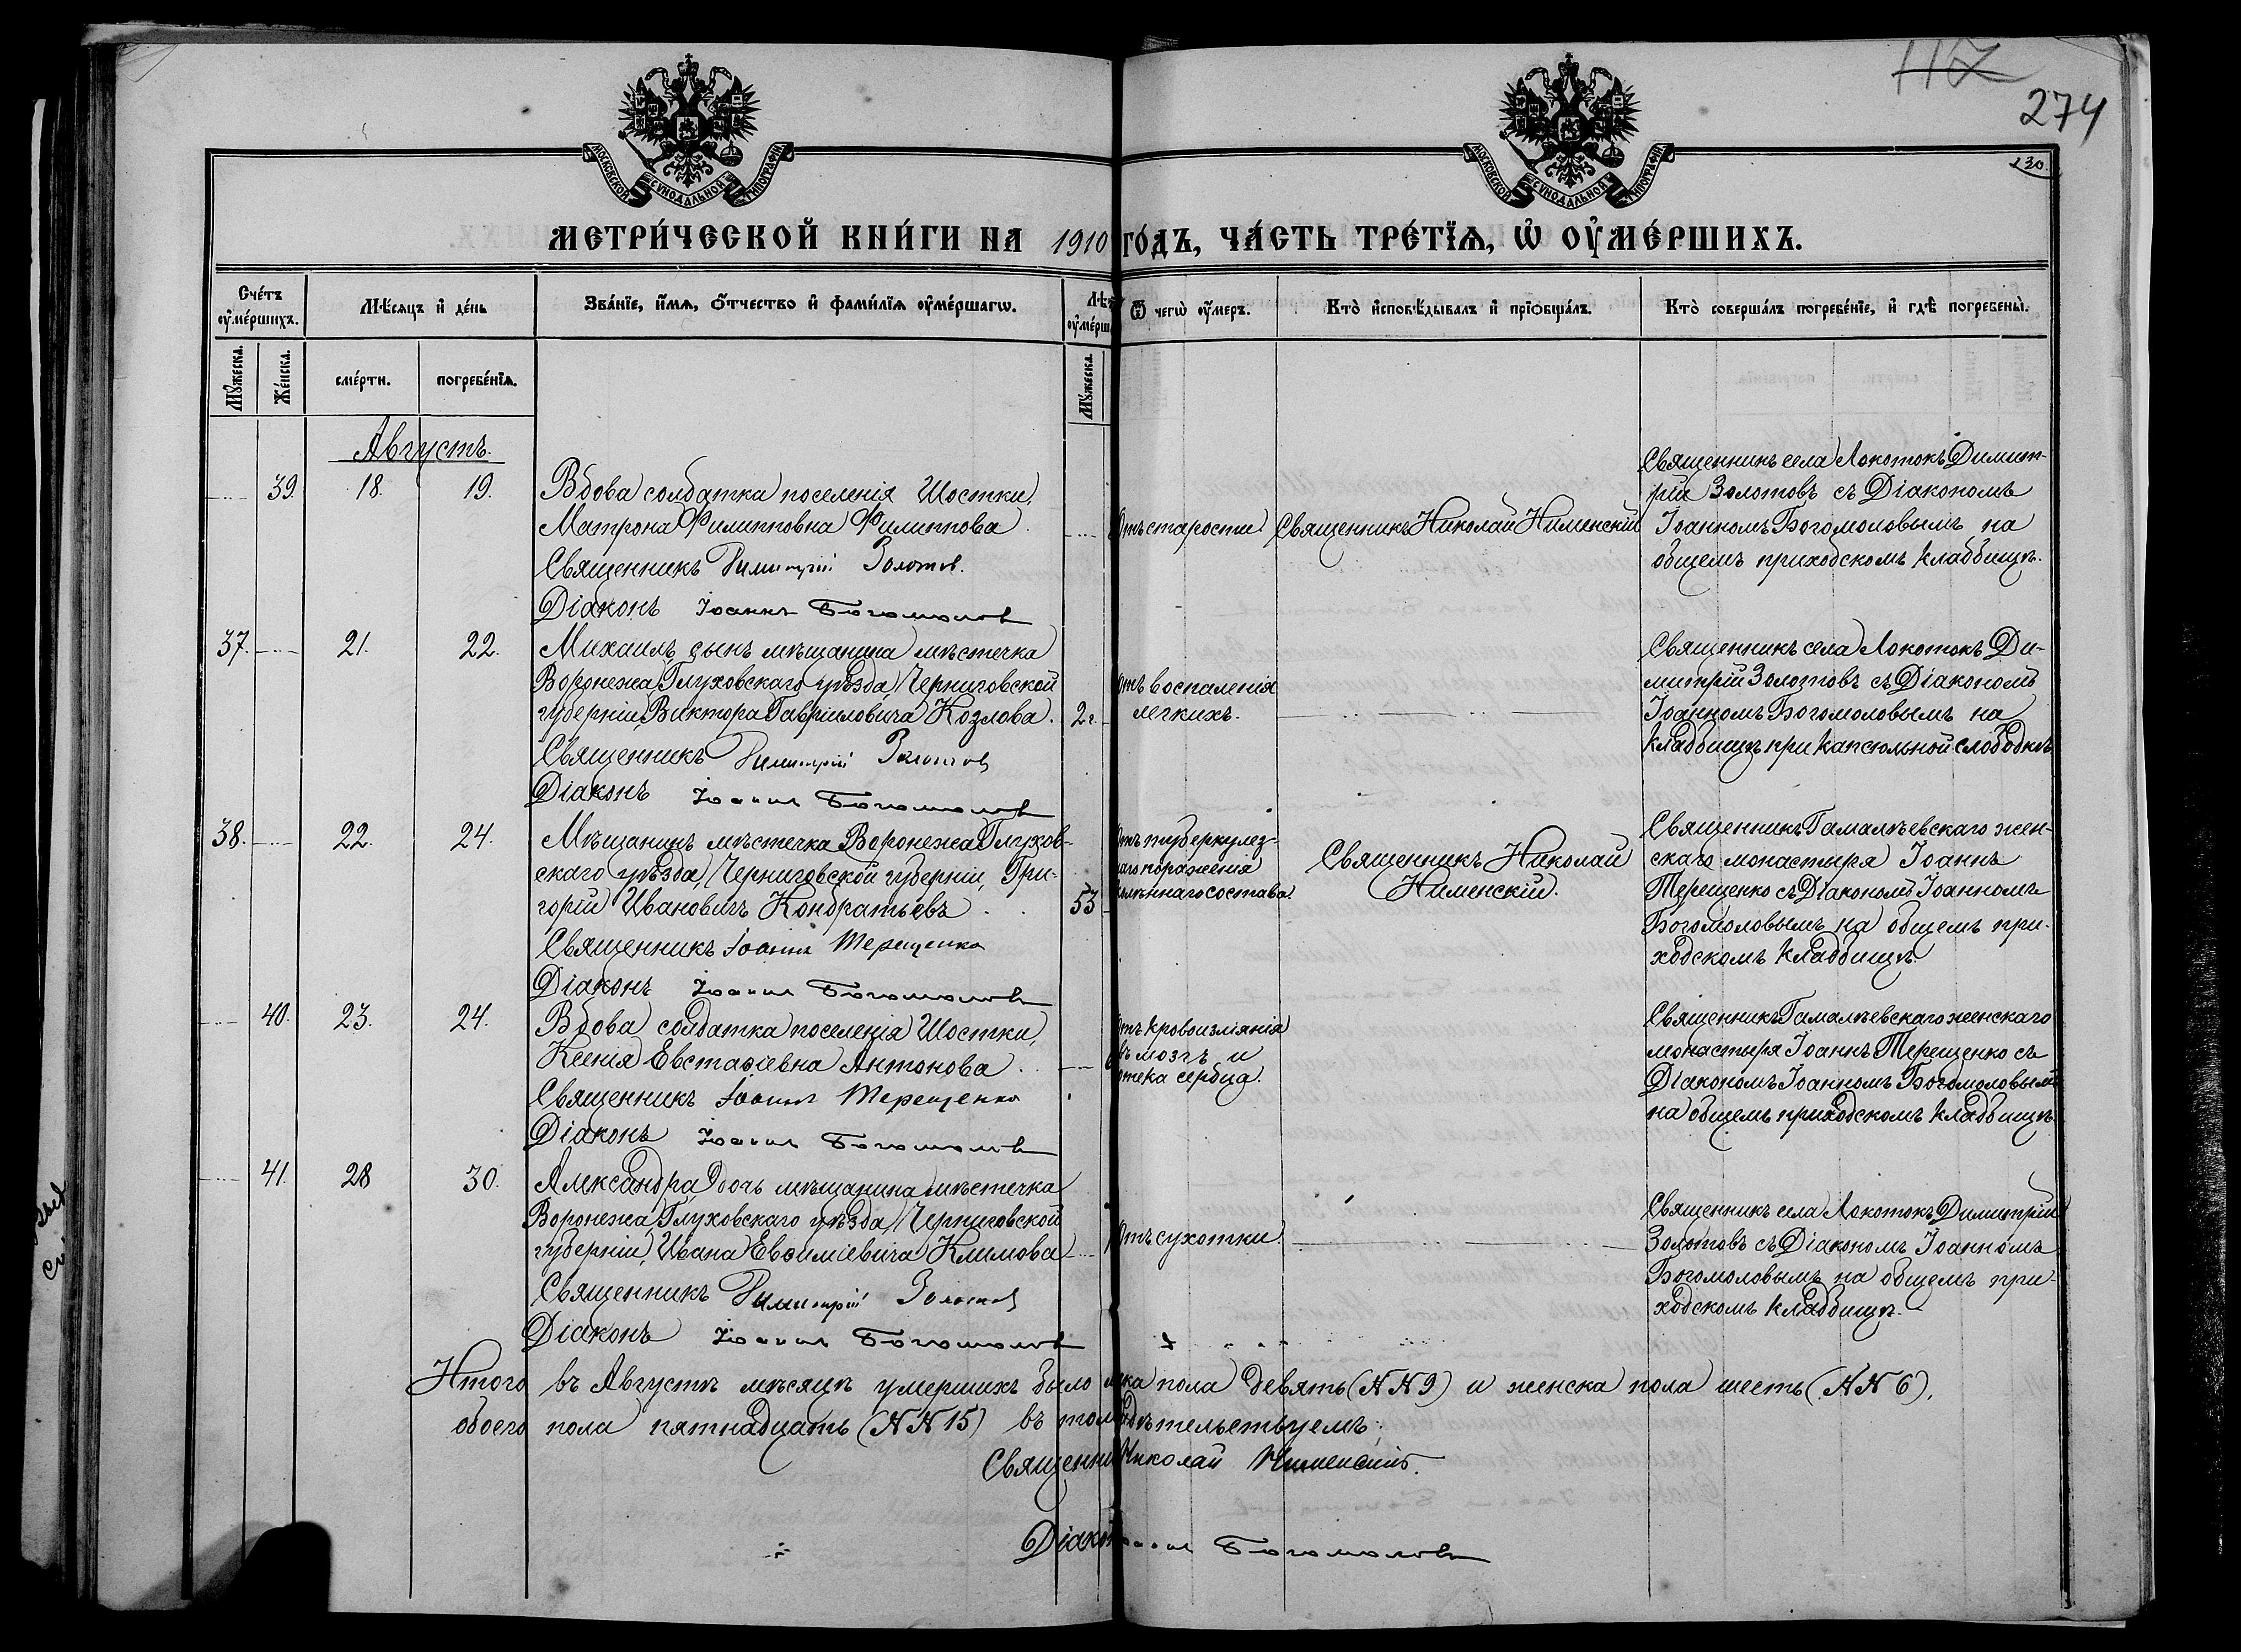 117
274
130.
МОСКОВСКОЙ СУНОДАЛЬНОЙ ТИПОГРАФІИ
МОСКОВСКОЙ СУНОДАЛЬНОЙ ТИПОГРАФІИ
МЕТРИ́ЧЕСКОЙ КНИ́ГИ НА 1910 ГО́ДЪ, ЧА́СТЬ ТРЕ́ТЇѦ, Ѡ҆ ОУ҆МЕ́РШИХЪ.
Сче́тъ оу҆ме́ршихъ.
Мѣ́сяцъ и҆ де́нь
Зва́нїе, и҆́мѧ, ѻ҆́тчество и҆ фами́лїѧ оу҆ме́ршагѡ.
Лѣт
оу҆ме́рш
Ѿ чегѡ̀ оу҆́меръ.
Кто̀ и҆сповѣ́дывалъ и҆ прїобща́лъ.
Кто̀ соверша́лъ погребе́нїе, и҆ гдѣ̀ погребены̀.
Мꙋ́жеска.
Же́нска.
сме́рти.
погребе́нїѧ.
Мꙋ́жеска.
Августъ.
39. 18. 19.
Вдова солдатка поселенія Шостки,
Матрона Филипповна Филиппова
Священникъ Димитрій Золотов.
Діаконъ Іоаннъ Богомолов
Отъ старости.
Священникъ Николай Нименскій
Священникъ села Локотокъ Димит-
рій Золотовъ съ Діакономъ
Іоанномъ Богомоловымъ на
общемъ приходскомъ кладбищѣ.
37. 21. 22.
Михаилъ, сынъ мѣщанина мѣстечка
Воронежа, Глуховскаго уѣзда, Черниговской
губерніи, Виктора Гавріиловича Козлова. 2 г.
Священникъ Димитрій Золотов
Діаконъ Іоаннъ Богомолов
Отъ воспаленія
легкихъ.
Священникъ села Локотокъ Ди-
митрій Золотовъ съ Діакономъ
Іоанномъ Богомоловымъ на
кладбищѣ при капсюльной слободкѣ
38. 22. 24.
Мѣщанинъ мѣстечка Воронежа Глухов-
скаго уѣзда, Черниговской губерніи, Гри-
горій Ивановичъ Кондратьевъ 53
Священникъ Іоаннъ Терещенко
Діаконъ Іоаннъ Богомолов
Отъ туберкулез-
наго пораженія
колѣннаго состава.
Священникъ Николай
Нименскій.
Священникъ Гамалѣевскаго жен-
скаго монастыря Іоаннъ
Терещенко съ Діакономъ Іоанномъ
Богомоловымъ на общемъ при-
ходскомъ кладбищѣ.
40. 23. 24.
Вдова солдатка поселенія Шостки,
Ксенія Евстаѳіевна Антонова
Священникъ Іоаннъ Терещенко
Діаконъ Іоаннъ Богомолов
Отъ кровоизліянія
въ мозгъ и
отека сердца.
Священникъ Гамалѣевскаго женскаго
монастыря Іоаннъ Терещенко съ
Діакономъ Іоанномъ Богомоловымъ
на общемъ приходскомъ кладбищѣ
41. 28 30.
Александра, дочь мѣщанина мѣстечка
Воронежа, Глуховскаго уѣзда, Черниговской
губерніи, Ивана Евѳиміевича Климова
Священникъ Димитрій Золотов
Діаконъ Іоаннъ Богомолов
Отъ сухотки.
Священникъ села Локотокъ Димитрій
Золотовъ съ Діакономъ Іоанномъ
Богомоловымъ на общемъ при-
ходскомъ кладбищѣ.
Итого въ Августѣ мѣсяцѣ умершихъ было мска пола девять (№№ 9) и женска пола шесть (№№ 6),
обоего пола пятнадцать (№№ 15) въ том дѣтельствуемъ:
Священни Николай Нименскій.
Діакон Іоаннъ Богомолов